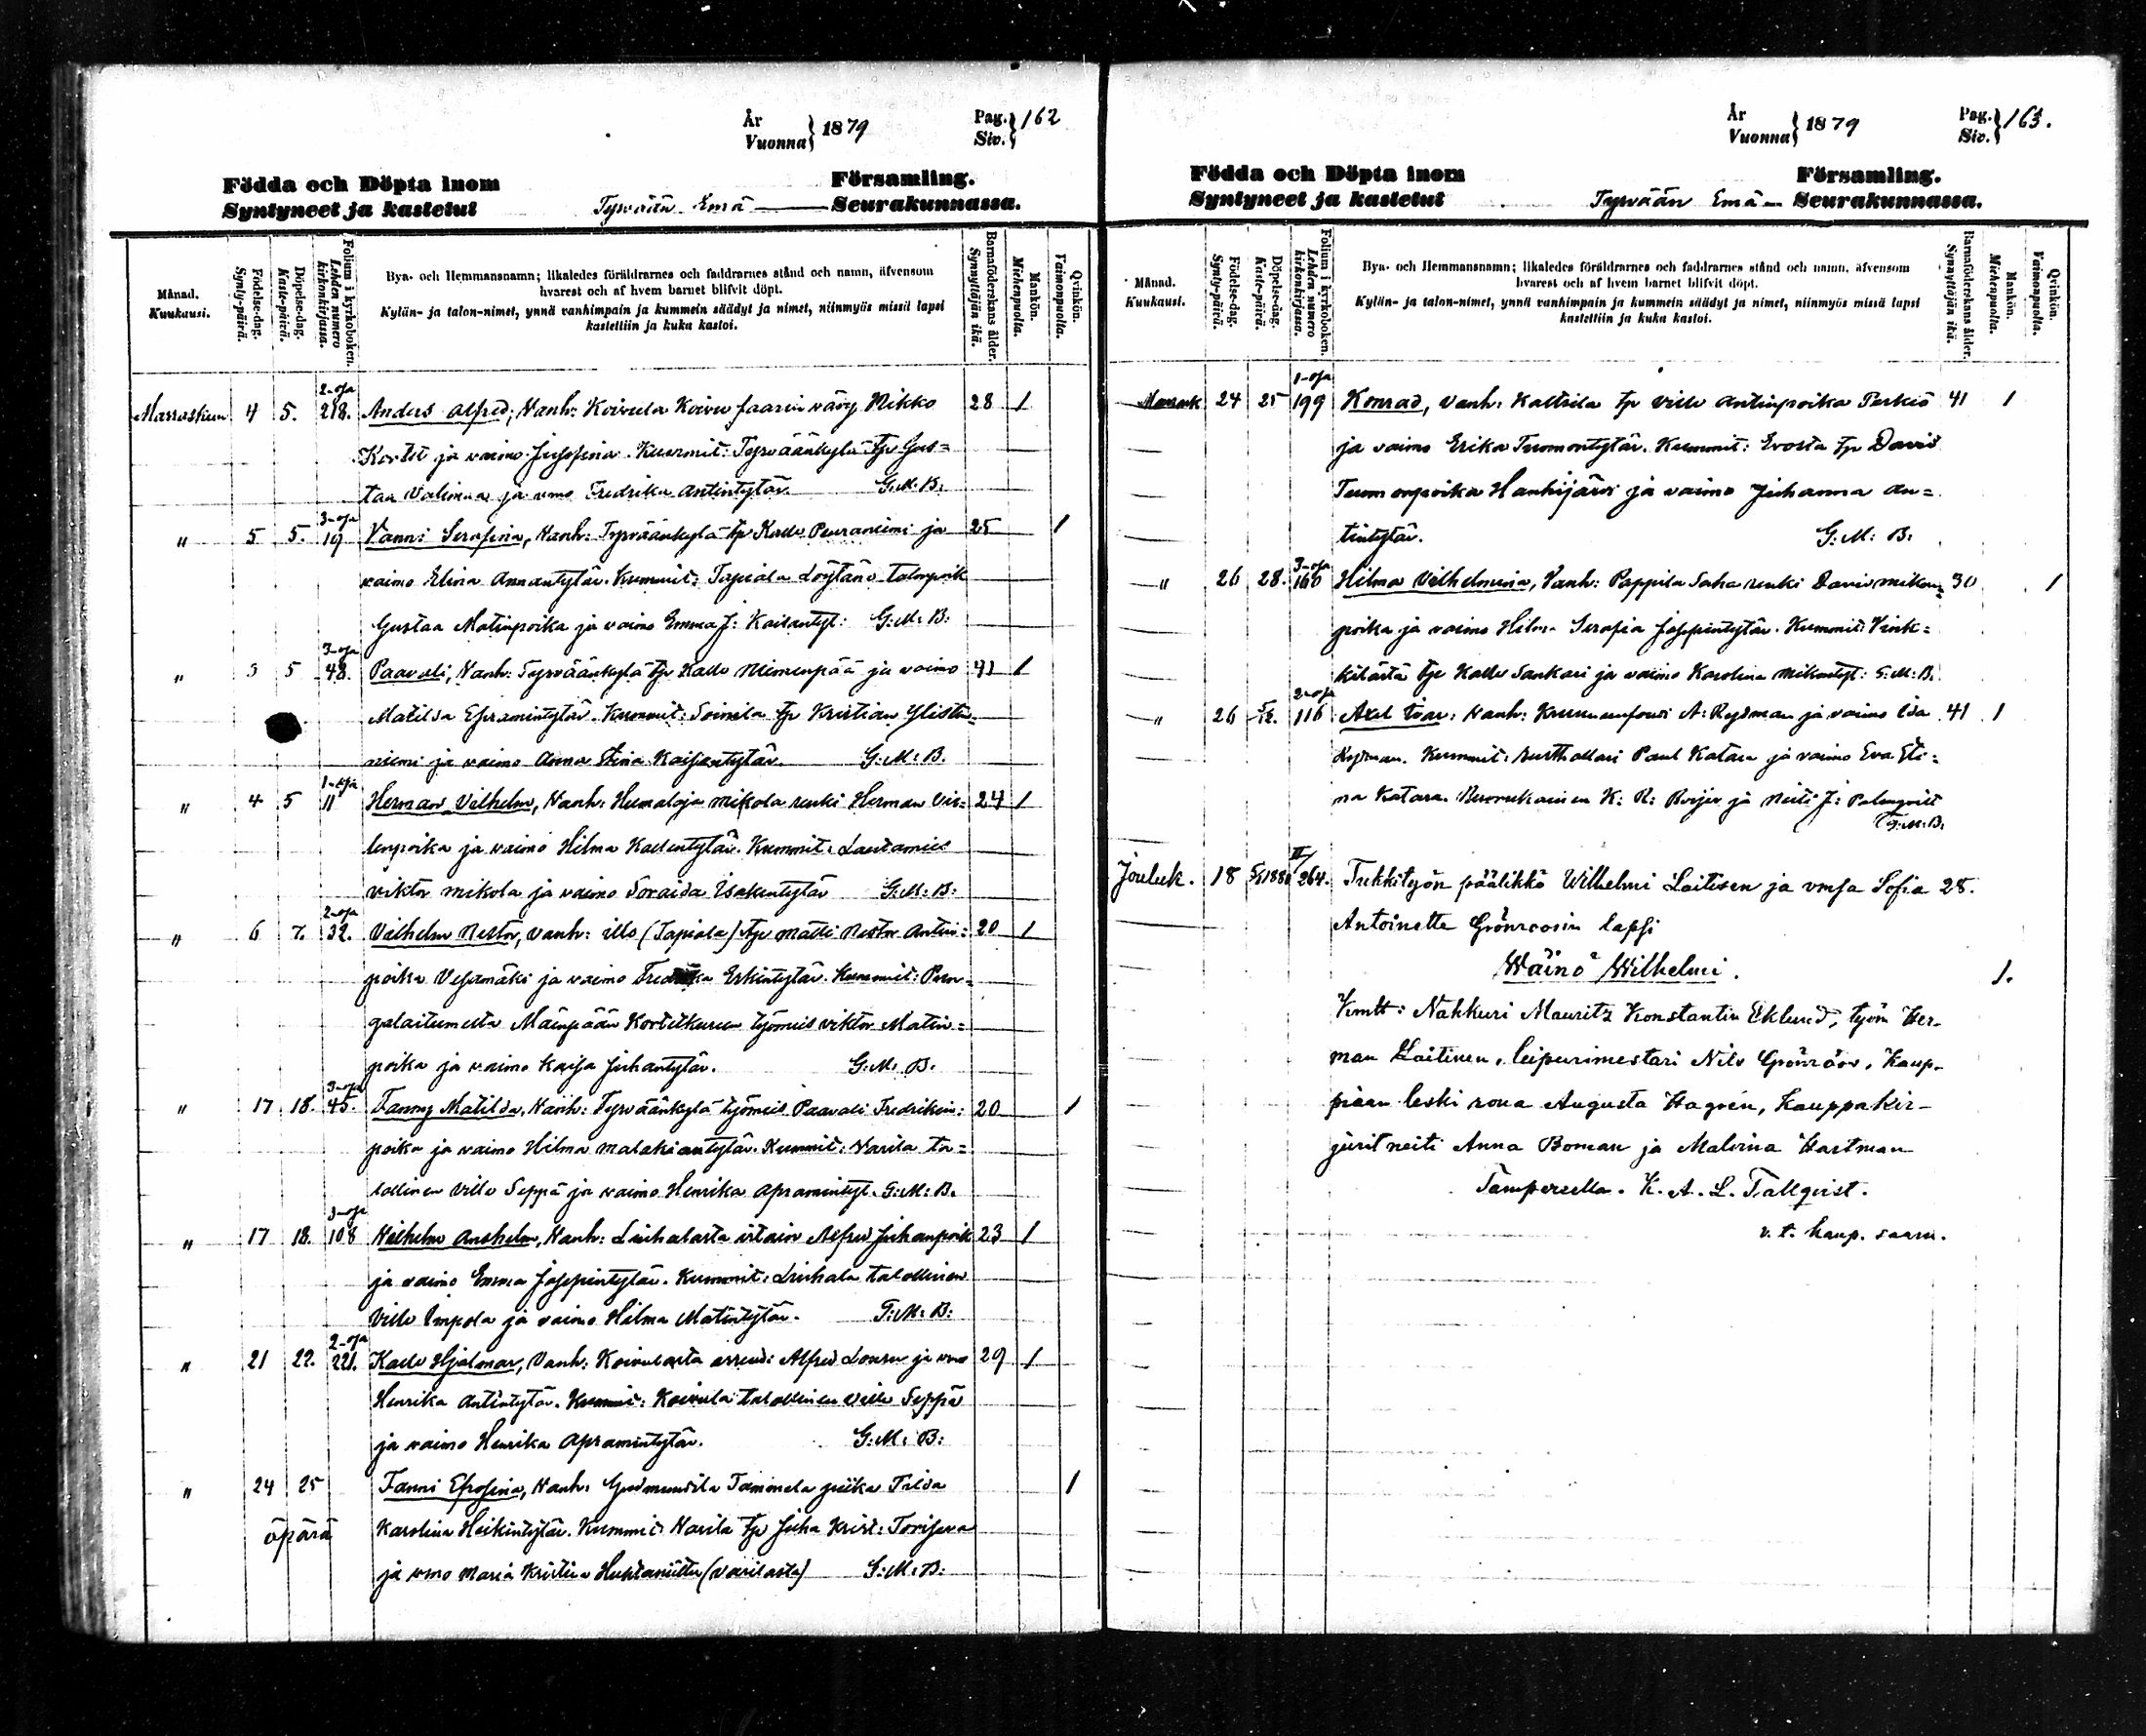 År
Vuonna } 1879
Pag.
Siv. } 162
Födda och Döpta inom Församling.
Syntyneet ja kastetut Tyrvään Emä Seurakunnassa.
Månad.
Kuukausi.
Födelse-dag.
Synty-päivä.
Döpelse-dag.
Kaste-päivä.
Folium i kyrkoboken.
Lehden numero kirkonkirjassa.
Bya- och Hemmansnamn; likaledes föräldrarnes och faddrarnes stånd och namn, äfvensom
hvarest och af hvem barnet blifvit döpt.
Kylän- ja talon-nimet, ynnä vanhimpain ja kummein säädyt ja nimet, niinmyös missä lapsi
kastettiin ja kuka kastoi.
Barnaföderskans ålder.
Synnyttäjän ikä.
Mankön.
Miehenpuolta.
Qvinkön.
Vaimonpuolta.
2-osa
Marraskuu 4 5. 218. Anders Alfred, Vanh: Koivula Koivu faarin vävy Mikko 28 1
ja vaimo Josefina. Kummit: Tyrväänkylä tp Gus=
taa ja vmo Fredrika Antintytär. G:M:B:
3-osa
" 5 5. 19 Vanni Serafina, Vanh: Tyrväänkylä tp Kalle Peuraniemi ja 25 1
vaimo Elina Annantytär. Kummit: Tapiola Löytänö talonpoik
Gustaa Matinpoika ja vaimo Emma J: Kaisantyt: G:M:B:
3-osa
" 3 5 48. Paavali, Vanh: Tyrväänkylä tp Kalle Niemenpää ja vaimo 41 1
Matilda Eframintytär. Kummit: Soinila tp Kristian Ylistä=
niemi ja vaimo Anna Stina Kaisantytär. G:M:B.
1-osa
" 4 5 11 Herman Vilhelm, Vanh: Humaloja Mikola renki Herman Vil= 24 1
lenpoika ja vaimo Hilma Kallentytär. Kummit: Lautamies
Viktor Mikola ja vaimo Isakintytär G:M:B:
2-osa
" 6 7. 32. Vilhelm Nestor, Vanh: Illo (Tapiola) tp Matti Nestor Antin= 20 1
poika Vesamäki ja vaimo Fredrika Erkintytär. Kummit:
Mäenpään työmies Viktor Matin=
poika ja vaimo Kaisa Juhantytär. G:M:B.
3-osa
" 17 18. 45. Fanny Matilda, Vanh: Tyrväänkylä työmies Paavali Fredrikin= 20 1
poika ja vaimo Hilma Malakiantytär. Kummit: Varila ta=
lollinen Ville Seppä ja vaimo Henrika Apramintyt. G:M:B.
3-osa
" 17 18. 108 Vilhelm Anshelm, Vanh: Liuhalasta Alfred Juhanpoik 23 1
ja vaimo Emma Josepintytär. Kummit: Liuhala talollinen
Ville Impola ja vaimo Hilma Matintytär. G:M:B:
2-osa
" 21 22. 221. Kalle Hjalmar, Vanh: Koivulasta arrend: Alfred ja vmo 29 1
Henrika Antintytär. Kummit: Koivula talollinen Ville Seppä
ja vaimo Henrika Apramintytär. G:M:B:
" 24 25 Fanni Efrosina, Vanh: Gudmundila Tammela piika Tilda 1
öpärä Karolina Heikintytär. Kummit: Varila tp Juha Krist:
ja vmo Maria Kristina Huhtaniittu (Varilasta) G:M:B:
År
Vuonna } 1879
Pag.
Siv. } 163.
Födda och Döpta inom Församling.
Syntyneet ja kastetut Tyrvään Emä Seurakunnassa.
Månad.
Kuukausi.
Födelse-dag.
Synty-päivä.
Döpelse-dag.
Kaste-päivä.
Folium i kyrkoboken.
Lehden numero kirkonkirjassa.
Bya- och Hemmansnamn; likaledes föräldrarnes och faddrarnes stånd och namn, äfvensom
hvarest och af hvem barnet blifvit döpt.
Kylän- ja talon-nimet, ynnä vanhimpain ja kummein säädyt ja nimet, niinmyös missä lapsi
kastettiin ja kuka kastoi.
Barnaföderskans ålder.
Synnyttäjän ikä.
Mankön.
Miehenpuolta.
Qvinkön.
Vaimonpuolta.
1-osa
Marrask 24 25 199 Konrad, Vanh: Kaltsila tp Ville Antinpoika Perkiö 41 1
ja vaimo Erika Tuomontytär. Kummit: Evosta tp David
Tuomonpoika Hanhijärvi ja vaimo Johanna An=
tintytär. G:M:B.
3-osa
" 26 28. 160 Hilma Vilhelmina, Vanh: Pappila Saha renki David Mikon= 30 1
poika ja vaimo Hilma Serafia Josepintytär. Kummit: Vink=
kilästä tp Kalle Sankari ja vaimo Karolina Mikontyt: G:M:B.
2-osa
" 26 5/12. 116 Axel Ivar: Vanh: Kruununfouti A: Rydman ja vaimo Ida 41 1
Rydman. Kummit: Paul Katara ja vaimo Eva Sti=
na Katara. K: R: Roijer ja Neiti J: Palmqvist
G:M:B.
II/
Jouluk. 18 5/1 1880 264. Tukkityön päälikkö Wilhelmi Laitisen ja vmsa Sofia 28.
Antoinette Grönroosin lapsi
Wäinö Wilhelmi. 1.
Kmtt: Nahkuri Mauritz Konstantin Eklund, työm Her-
man Laitinen, leipurimestari Nils Grönroos, Kaup-
piaan leski rova Augusta Hagrén, Kauppakir-
jurit neiti Anna Boman ja Malvina Hartman
Tampereella. K. A. L. Tallqvist.
v. t. kaup. saarn.